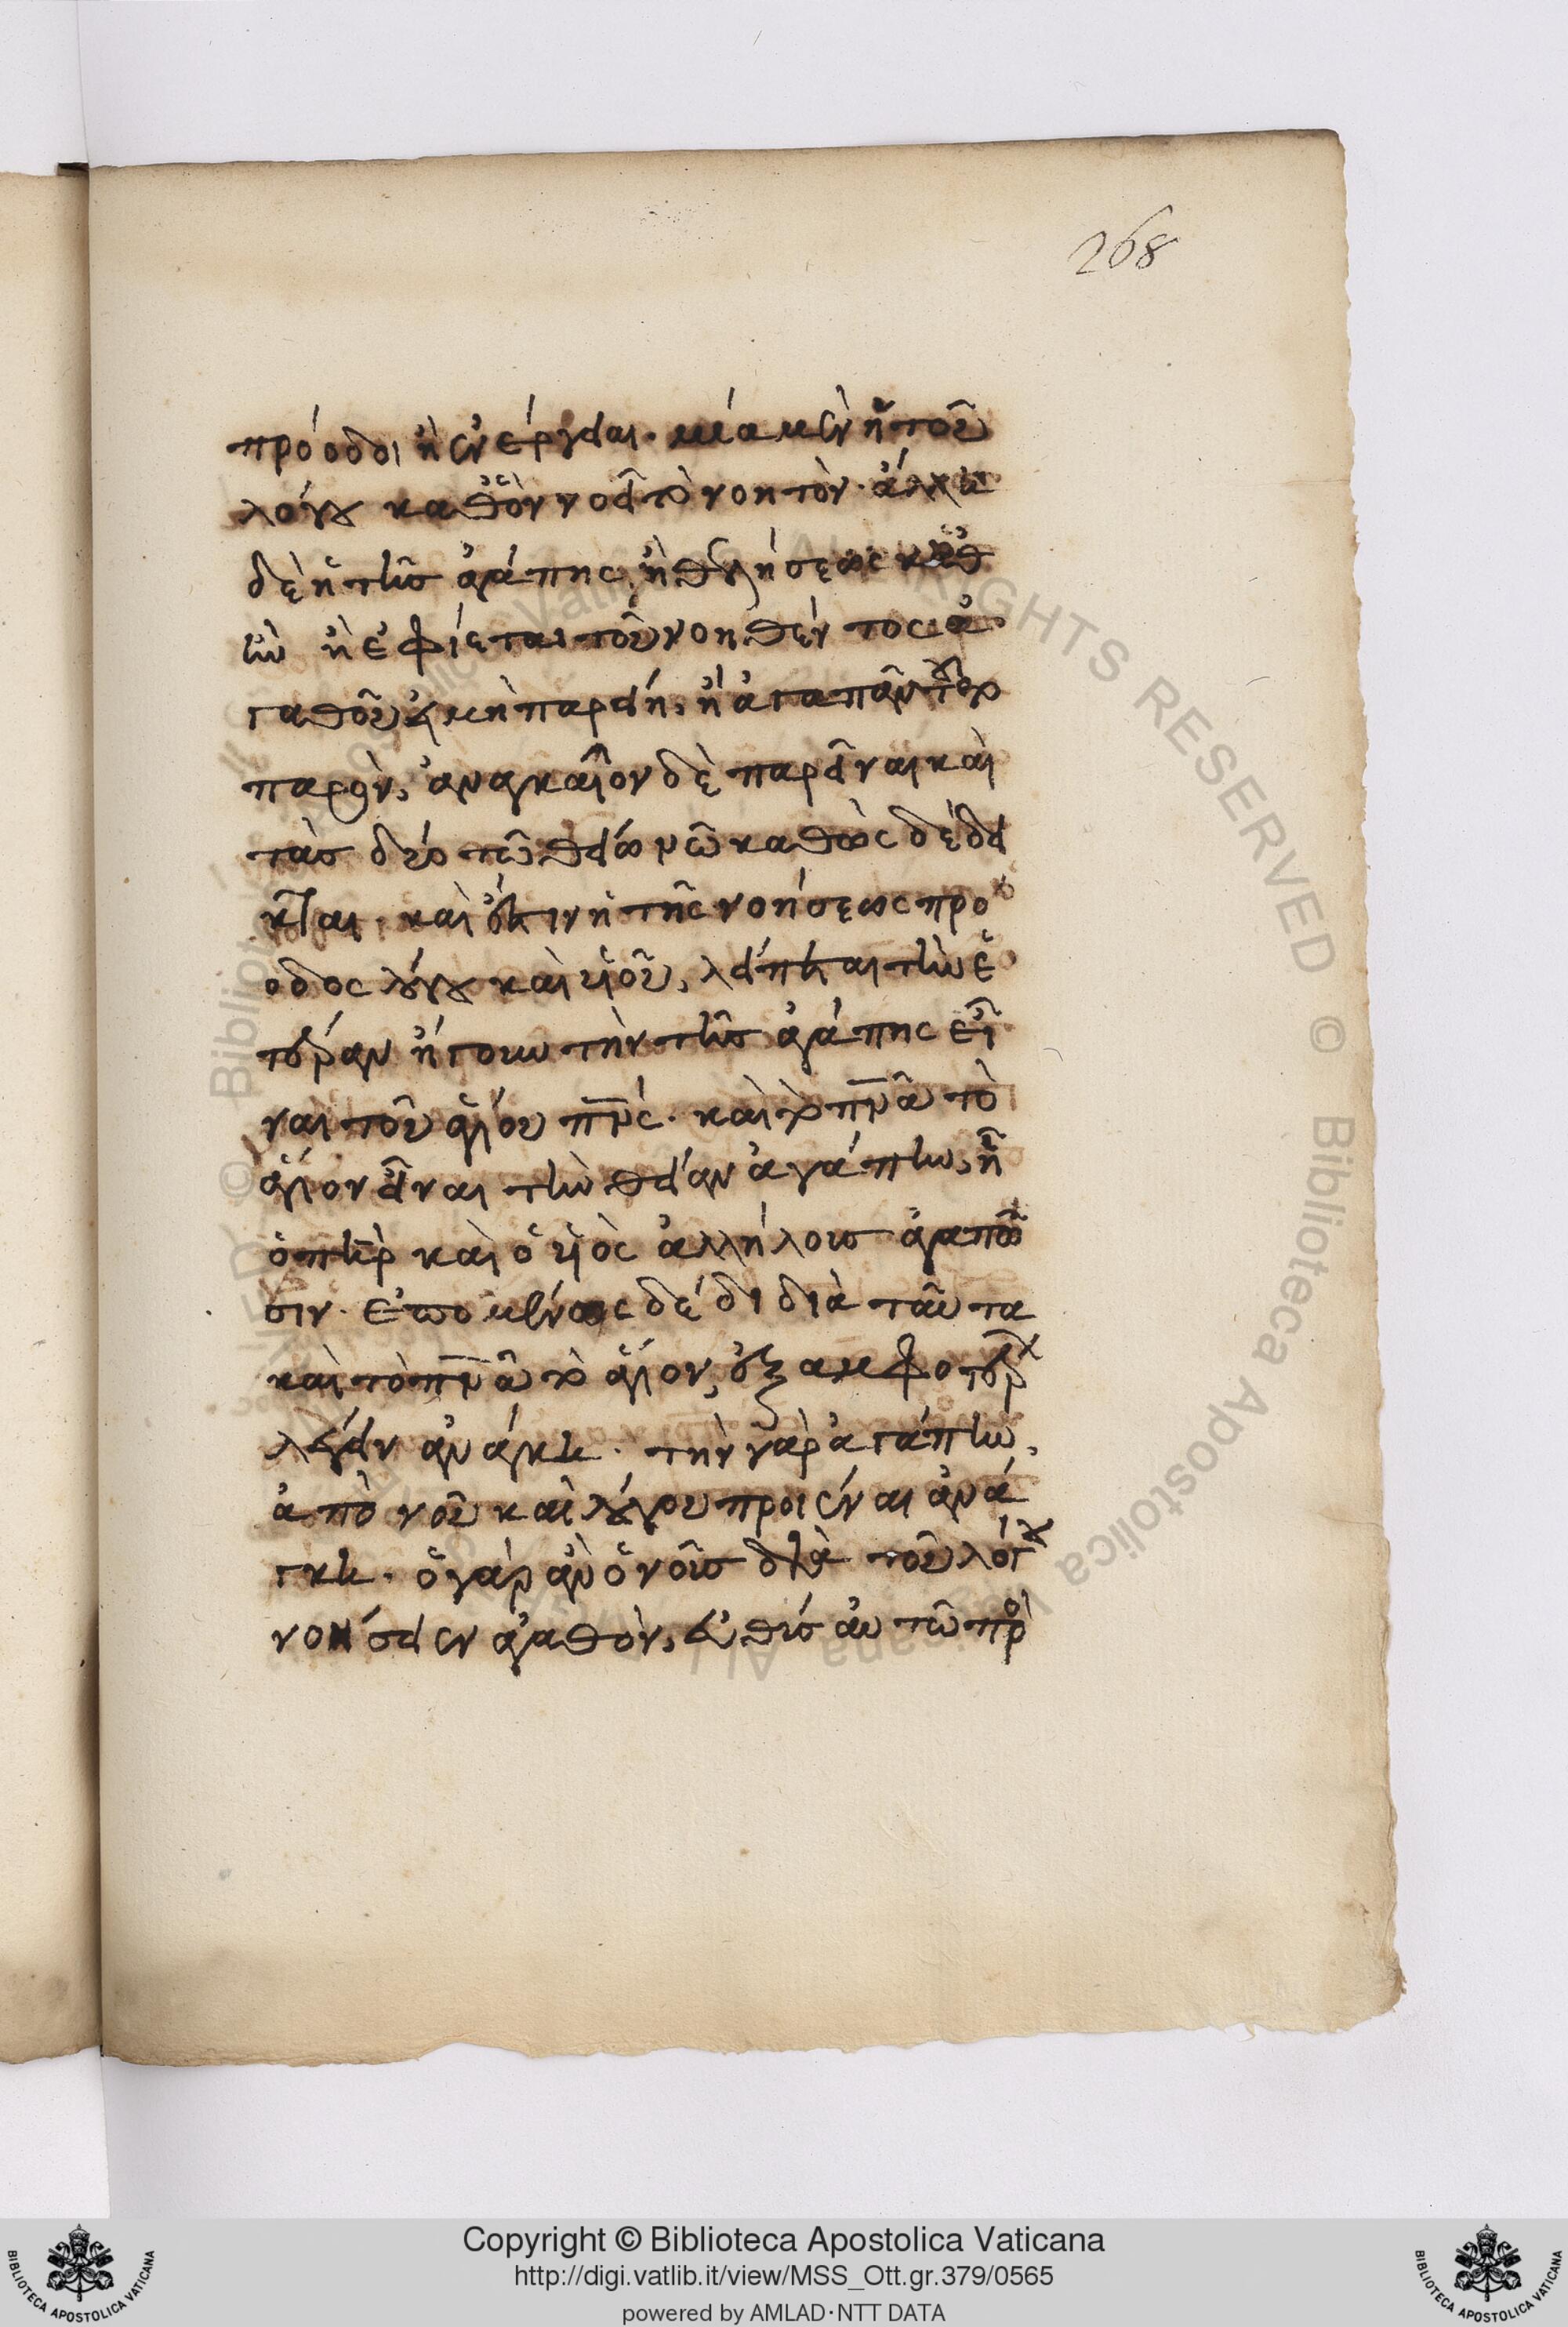 268
πρόοδοι ἢ ἐνέργειαι· μία μὲν ἡ τοῦ
λόγου καθ' ὃν νοεῖ τὸ νοητὸν· ἄλλη
δὲ ἡ τῆς ἀγάπης ἢ θελήσεως καθ'
ἣν ἢ ἐφίεται τοῦ νοηθέντος ἀ
γαθοῦ εἰ μὴ παρείη, ἢ ἀγαπᾶν τοῦτο
παρὸν, ἀναγκαῖον δὲ παρεῖναι καὶ
τὰς δύο τῶ θείω νῶ καθὼς δέδει
κται· καὶ ἔστιν ἡ τῆς νοήσεως πρό
οδος λόγου καὶ υἱοῦ, λείπεται τὴν ἑ
τέραν ἤγουν τὴν τῆς ἀγάπης εἶ
ναι τοῦ ἁγίου πνς· καὶ τὸ πνα τὸ
ἅγιον εἶναι τὴν θείαν ἀγάπην, ἧ
ὁ πηρ καὶ ὁ υἱὸς ἀλλήλους ἀγαπῶ
σιν· ἑπομένως δέ δι διὰ ταῦτα
καὶ τὸ πνα τὸ ἅγιον, ἐξ ἀμφοτέρων
λέγειν ἀνάγκη· τὴν γὰρ ἀγάπην,
ἀπὸ νοῦ καὶ λόγου προιέναι ἀνά
γκη· ὃ γὰρ ἂν ὁ νοῦς διὰ τοῦ λόγου
νοήσειεν ἀγαθὸν, εὐθὺς αὐτῶ πρὸ
Copyright © Biblioteca Apostolica Vaticana
http://digi.vatlib.it/view/MSS_Ott.gr.379/0565
powered by AMLAD·NTT DATA
BIBLIOTECA APOSTOLICA VATICANA
BIBLIOTECA APOSTOLICA VATICANA